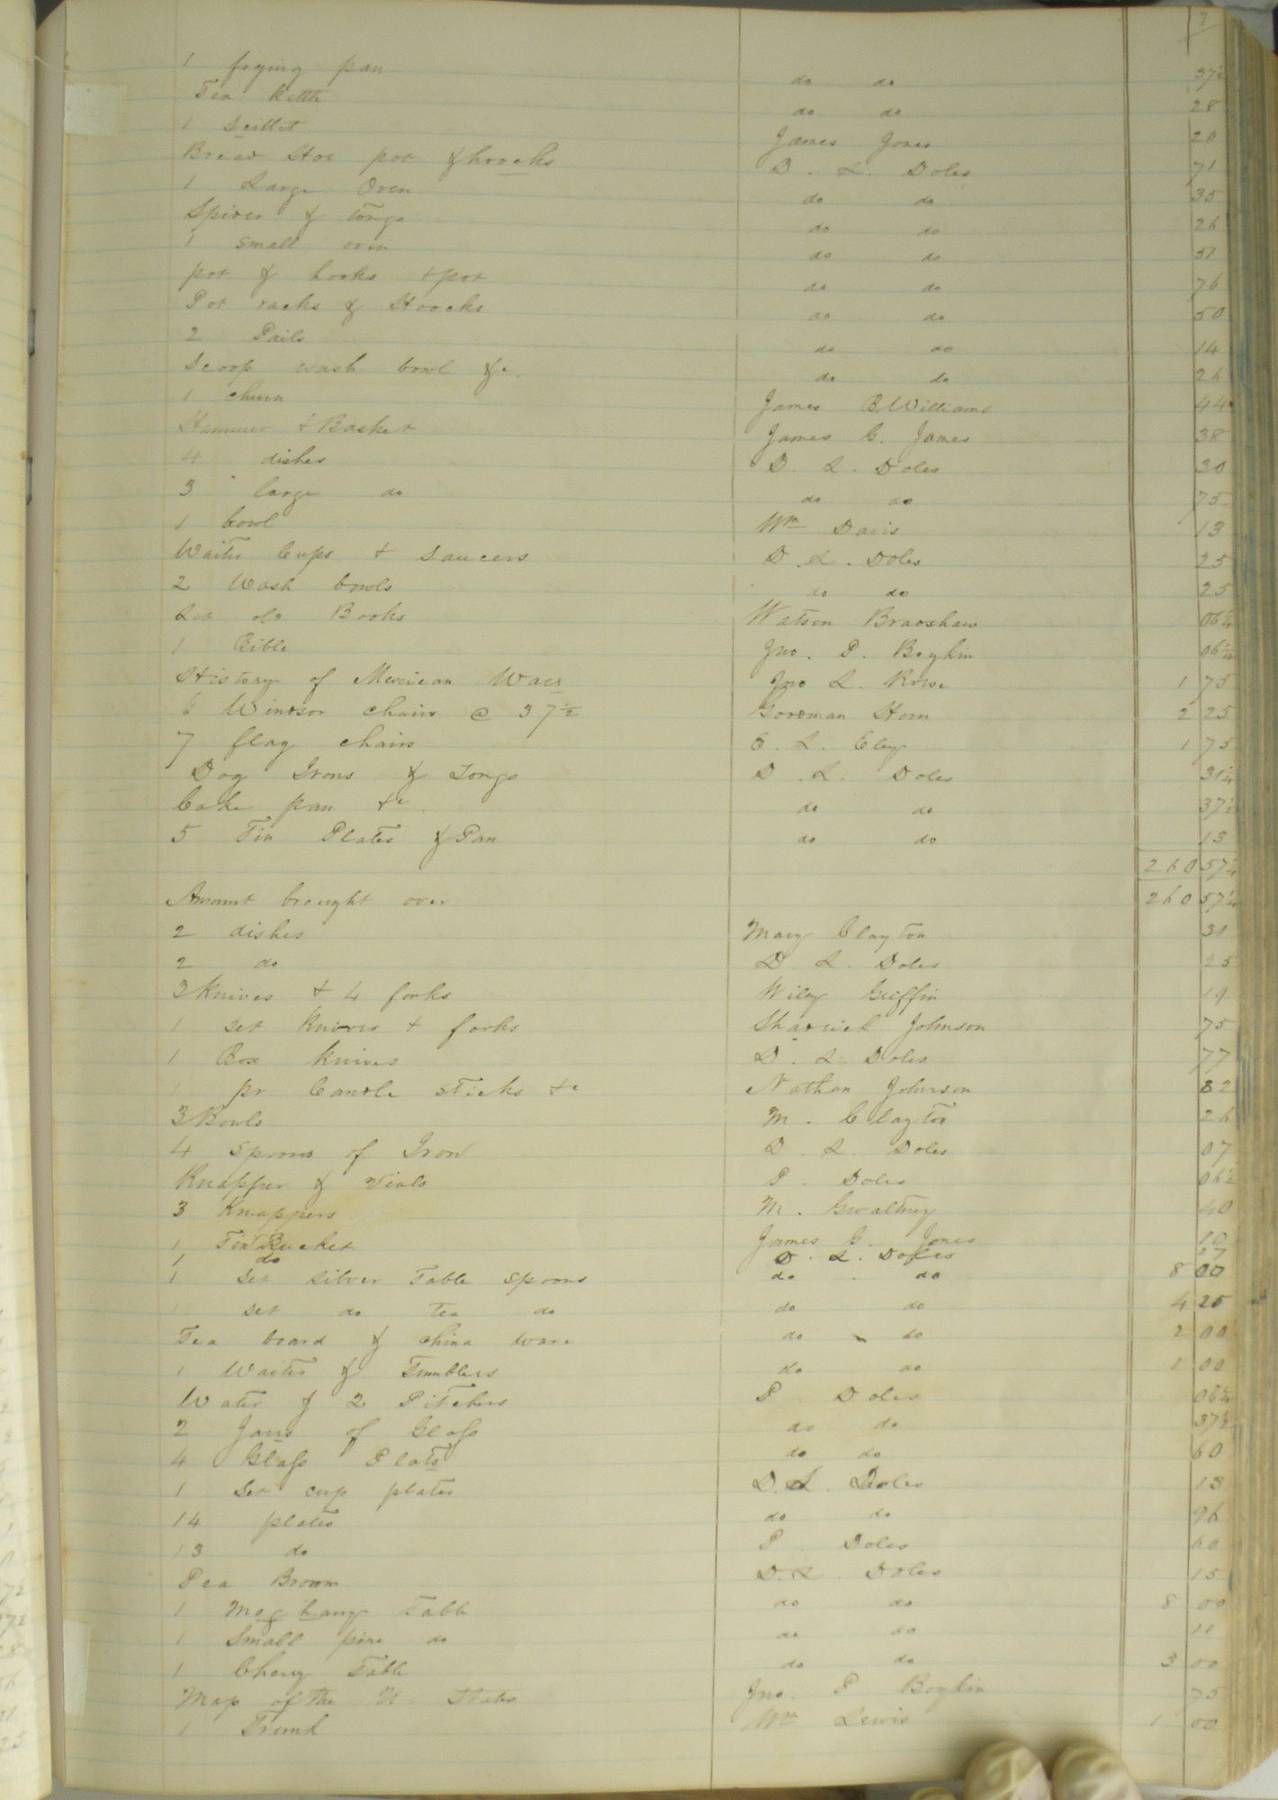 7
1 frying pan do do 37½
Tea kettle do do 28
1 Scillit James Jones 20
Bread Hoe pot & hoocks D. L. Doles 71
1 Large Oven do do 35
Spider & tongs do do 26
1 small oven do do 51
pot & hooks + pot do do 76
Pot racks & Hoocks do do 50
2 Pails do do 14
Scoop wash bowl &c. do do 26
1 churn James B. Williams 44
Hammer + Basket James G. James 38
4 dishes D. L. Doles 30
3 large do do do 75
1 bowl Wm Davis 13
Waiter Cups + Saucers D. L. Doles 25
2 Wash bowls do do 25
Lot old Books Watson Bradshaw 06¼
1 Bible Jno. P. Boykin 06¼
History of Mexican Waer Jno L. Rowe 1 75
6 Windsor chairs @ 37½ Goodman Horn 2 25
7 flag chairs E. L. Eley 1 75
Dog Irons & Tongs D. L. Doles 31¼
Cake pan +c. do do 37½
5 Tin Plates & Pan do do 13
260 57¼
Amount brought over 260 57¼
2 dishes Mary Clayton 31
2 do D L. Doles 25
3 Knives + 4 forks Wiley Griffin 19
1 Set Knives + forks Shadrick Johnson 75
1 Box Knives D. L Doles 77
1 pr Candle Sticks +c Nathan Johnson 32
3 Bowls M. Clayton 26
4 Spoons of Iron D. L. Doles 07
Knapper & Vials P. Doles 06¼
3 Knappers M. Gwaltney 40
1 Tin Bucket James G. Jones 10
1 do D. L. Doles 27
1 Set Silver Table Spoons do do 8 00
set do tea do do do 4 25
Tea board & china ware do do 2 00
1 Waiter & Tumblers do do 1 00
Water & 2 Pitchers P. Doles 06¼
2 Jars of Glass do do 37½
4 Glass Plats do do 60
1 Set cup plates D. L. Doles 13
14 plates do do 96
13 do P. Doles 60
Pea Broom D. L. Doles 15
1 Moghany Table do do 8 00
1 Small pine do do do 11
1 Cherry Table do do 3 00
Map of the U. States Jno. P Boykin 75
1 Trunk Wm Lewis 1 00